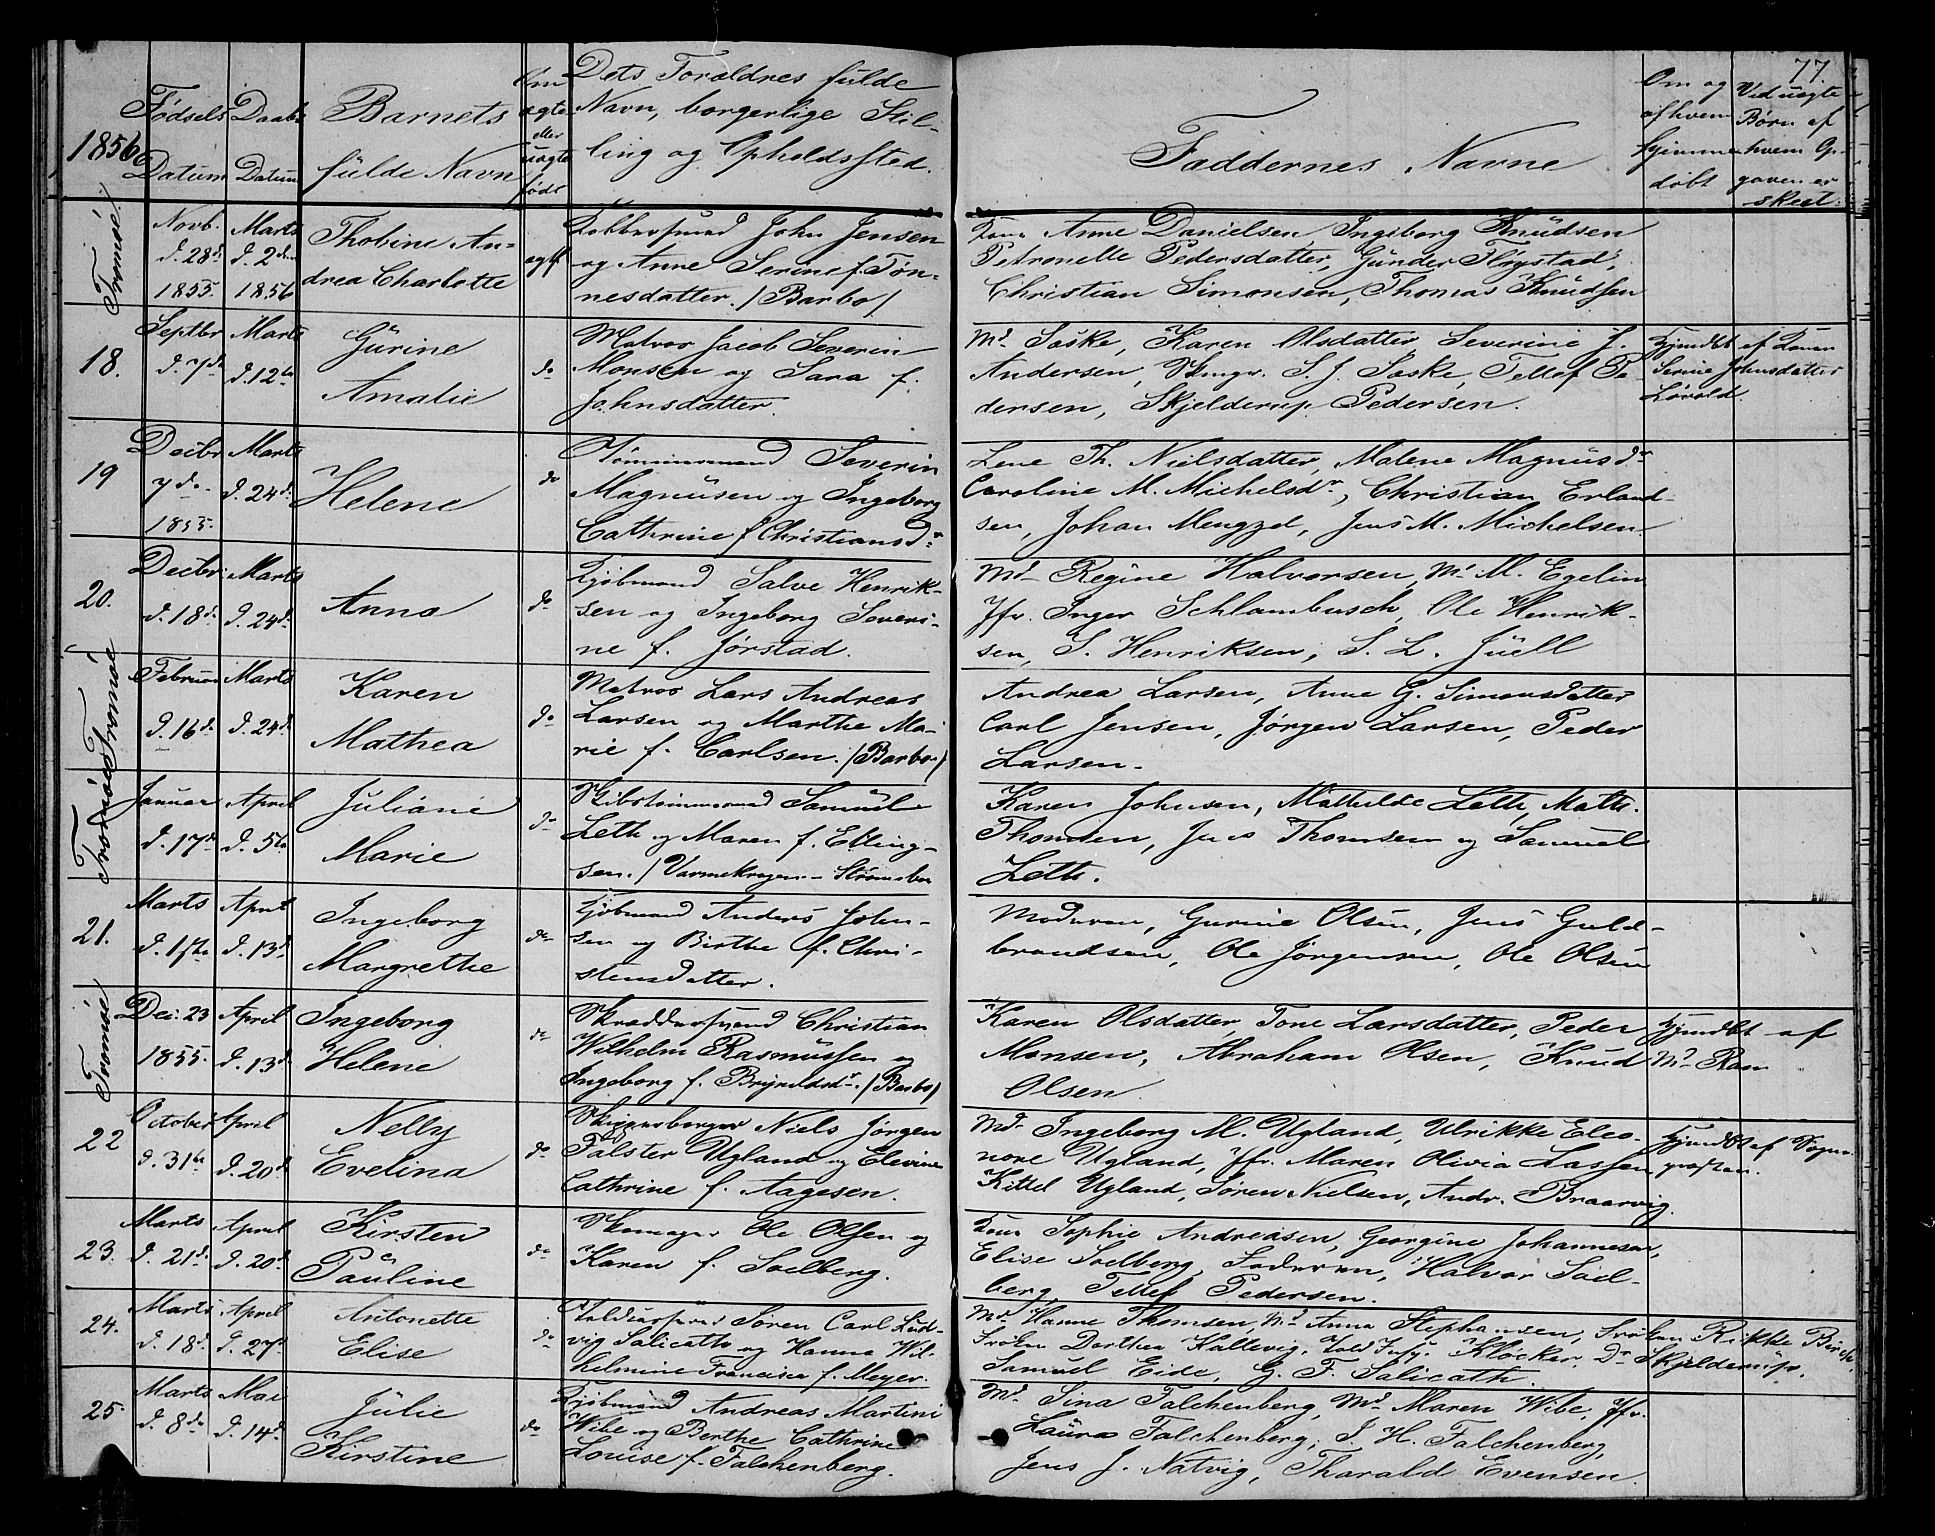 77.
1856
Fødsels Datum
Daabs Datum
Barnets fulde Navn
Om ægte eller uægte født
Dets Forældres fulde
Navn, borgerlige Stil-
ling og Opholdssted.
Faddernes Navne
Om og af hvem hjemmedøbt
Ved uægte Børn af hvem Opgaven er skeet.
Tromöe
Novb. d. 28de 1855.
Marts d. 2den 1856
Thobine An-
drea Charlotte
ægte
Kobbersmed John Jensen
og Anne Serine f. Tøn-
nesdatter. / Barbo /
Kone Anne Danielsen Ingeborg Knudsen
Petronelle Pedersdatter, Gunder Fløystad,
Christian Simonsen, Thomas Knudsen
18.
Septbr d. 7de
Marts d. 12te
Gurine
Amalie
do
Matros Jacob Severin
Monsen og Sara f.
Johnsdatter.
Md. Saske, Karen Olsdatter Severine J.
Andersen, S. J. Saske, Tellef Pe-
dersen, Skjelderup Pedersen.
Hjemdbt af Konen
Serine Johnsdatter
Løvold.
19
Decbr 7de 1855.
Marts d. 24de
Helene
do
Tømmermand Severin
Magnusen og Ingeborg
Cathrine f Christiansdr
Lene Th. Nielsdatter, Malene Magnusdr
Caroline M. Michelsdr, Christian Erland-
sen, Johan Mengzel, Jens M. Michelsen
20.
Decbr d. 18de
Marts d. 24de
Anna
do
Kjøbmand Salve Henrik-
sen og Ingeborg Severi-
ne f. Jørstad.
Md Regine Halvorsen, Md M. Egelin
Jfr. Inger Schlambusch, Ole Henrik-
sen, S. Henriksen, S. L. Juell
Tromöe
Februar d. 16de
Marts d. 24de
Karen
Mathea
do
Matros Lars Andreas
Larsen og Marthe Ma-
rie f. Carlsen. / Barbo /
Andrea Larsen, Anne G. Simonsdatter
Carl Jensen, Jørgen Larsen, Peder
Larsen.
Tromöe
Januar d. 17de
April d. 5te
Juliane
Marie
do
Skibstømmermand Samuel
Leth og Maren f. Elling-
sen. / Varmekrogen - Strømsbo
Karen Johnsen, Mathilde Leth, Math.
Thomsen, Jens Thomsen og Samuel
Leth.
21.
Marts d. 17de
April d. 13de
Ingeborg
Margrethe
do
Kjøbmand Anders John-
sen og Birthe f. Chri-
stensdatter.
Moderen, Gurine Olsen, Jens Guld-
brandsen, Ole Jørgensen, Ole Olsen
Tromöe
Dec: 23 1855.
April d. 13de
Ingeborg
Helene
do
Skreddersvend Christian
Wilhelm Rasmussen og
Ingeborg f. Brynildsdr. / Barbo /
Karen Olsdatter, Tone Larsdatter, Peder
Monsen, Abraham Olsen, Knud
Olsen
Hjemdbt af
Md. Ram
22
October d. 31te
April d. 20de
Nelly
Evelina
do
Skippersborger Niels Jørgen
Falster Ugland og Elevine
Cathrine f. Aagesen.
Md. Ingeborg M. Ugland, Ulrikke Eleo-
nore Ugland, Jfr. Maren Olivia Lassen
Kittel Ugland, Søren Nielsen, Andr. Braarvig.
Hjemdbt af Sogne-
præsten.
23.
Marts d. 21de
April d. 20de
Kirsten
Pauline
do
Skomager Ole Olsen og
Karen f. Soelberg.
Kone Sophie Andreasen, Georgine Johannesen,
Elise Soelberg, Faderen, Halvor Soel-
berg, Tellef Pedersen.
24.
Marts d. 18de
April d. 27de
Antonette
Elise
do
Toldinspector Søren Carl Lud-
vig Salicath og Hanna Wil-
helmine Francisca f. Meyer.
Md. Hanne Thomsen, Md. Anna Stephansen, Frøken Rikke Birch
Frøken Dorthea Kallevig, Told Insp. Kløcker, Dr Skjelderup,
Samuel Eide, G. F. Salicath.
25.
Marts d. 8de
Mai d. 14de
Julie
Kirstine
do
Kjøbmand Andreas Martini
Wibe og Berthe Cathrine
Louise f. Falchenberg.
Md. Sina Falchenberg, Md. Maren Wibe, Jfr.
Laura Falchenberg, J. H. Falchenberg,
Jens J. Natvig, Tharald Evensen.